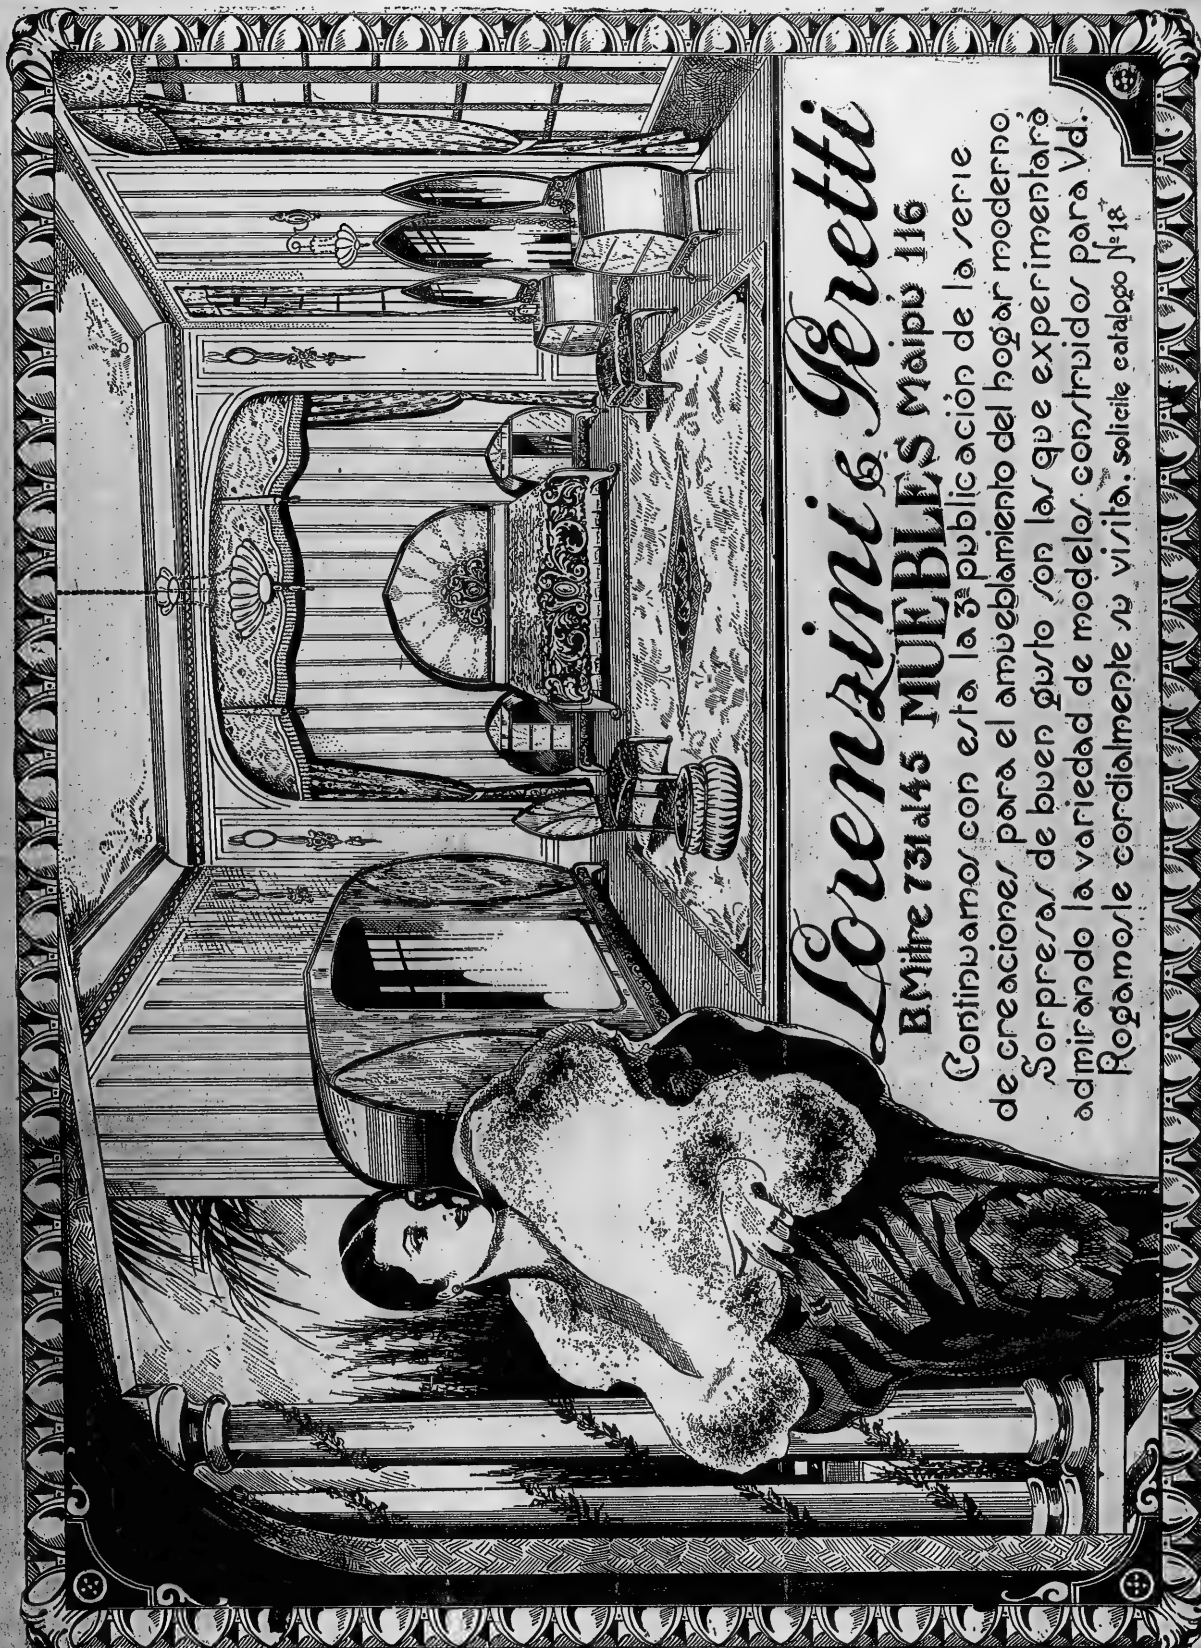 Lorenzini & Peretti
B Mitre 731 al 45 MUEBLES Maipú 116
Continuamos con esta la 3ª publicación de la serie
de creaciones para el amueblamiento del hogar moderno.
Sorpresas de buen gusto son las que experimentará
admirando la variedad de modelos construidos para Vd.
Rogamosle cordialmente su visita. solicite catalogo Nº 18